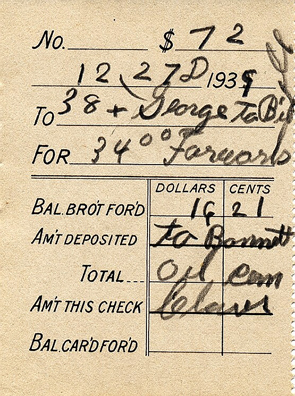 No. $ 72
12, 27 D 1939
To 38 + George to Bi
For 34 00 Forward
DOLLARS CENTS
BAL. BRO'T FOR'D 16 21
AM'T DEPOSITED to Bonnett
TOTAL Oil Com
AM'T THIS CHECK
BAL. CAR'D FOR'D